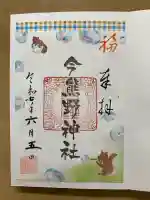 福
奉拝
今熊野神社
令和七年六月五日